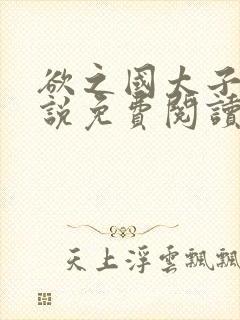 欲之國大子
說免費閱讀
天上浮雲飄飄